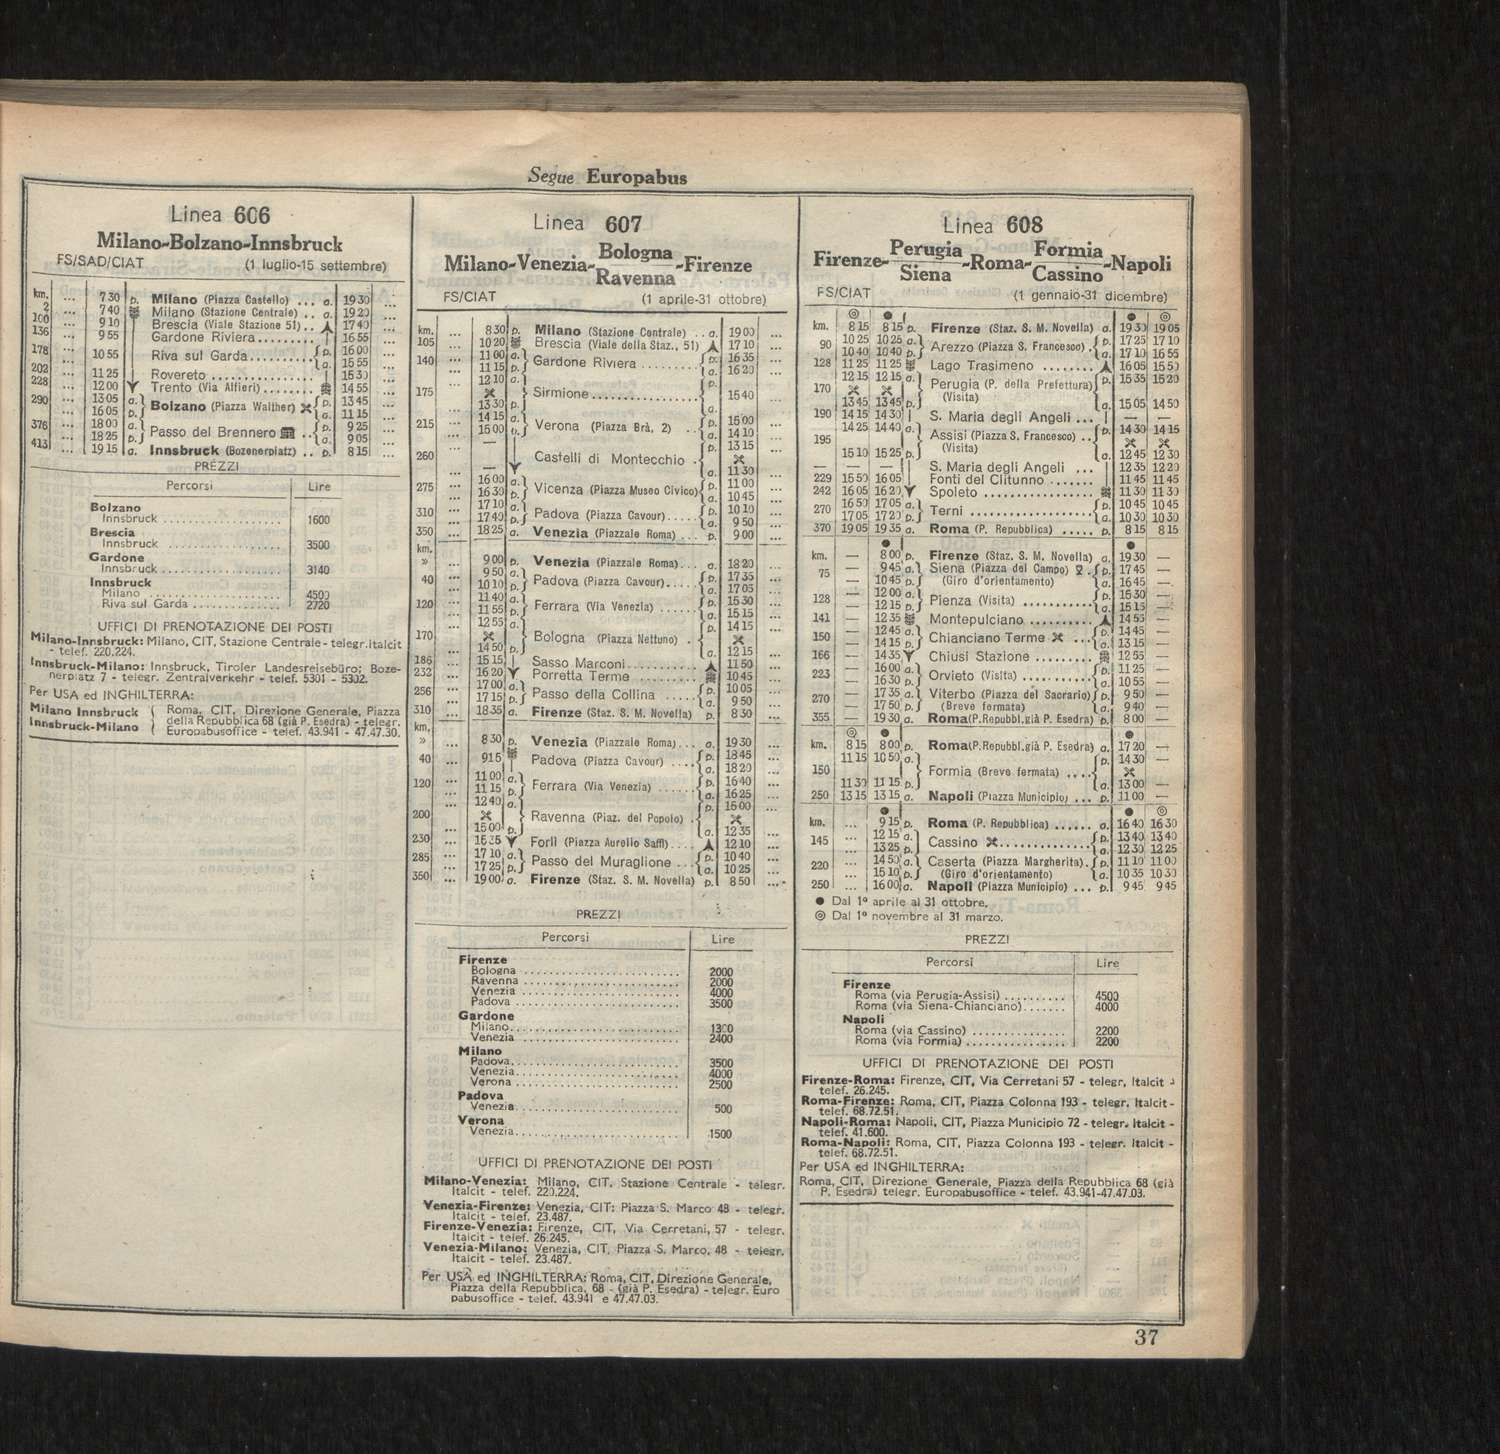 Segue Europabus
Linea 606
Milano-Bolzano-Innsbruck
FS/SAD/CIAT (1 luglio-15 settembre)
km. ... 7 30 p. Milano (Piazza Castello) ... a. 19 30 ...
2 ... 7 40 Milano (Stazione Centrale) .. a. 19 20 ...
100 ... 9 10 Brescia (Viale Stazione 51) .. 17 40 ...
136 ... 9 55 Gardone Riviera ......... 16 55 ...
178 ... 10 55 Riva sul Garda ........... p. 16 00 ...
a. 15 55 ...
202 ... 11 25 Rovereto ............... 15 30 ...
228 ... 12 00 Trento (Via Alfieri) ....... 14 55 ...
290 ... 13 05 a. Bolzano (Piazza Walther) p. 13 45 ...
... 16 05 p. a. 11 15 ...
376 ... 18 00 a. Passo del Brennero .. p. 9 25 ...
... 18 25 p. a. 9 05 ...
413 ... 19 15 a. Innsbruck (Bozenerplatz) .. p. 8 15 ...
PREZZI
Percorsi Lire
Bolzano
Innsbruck ................... 1600
Brescia
Innsbruck ................... 3500
Gardone
Innsbruck ................... 3140
Innsbruck
Milano ...................... 4500
Riva sul Garda .............. 2720
UFFICI DI PRENOTAZIONE DEI POSTI
Milano-Innsbruck: Milano, CIT, Stazione Centrale - telegr. Italcit
- telef. 220.224.
Innsbruck-Milano: Innsbruck, Tiroler Landesreisebüro; Boze-
nerplatz 7 - telegr. Zentralverkehr - telef. 5301 - 5302.
Per USA ed INGHILTERRA:
Milano Innsbruck Roma, CIT, Direzione Generale, Piazza
Innsbruck-Milano della Repubblica 68 (già P. Esedra) - telegr.
Europabusoffice - telef. 43.941 - 47.47.30.
Linea 607
Milano-Venezia-Bologna
Ravenna-Firenze
FS/CIAT (1 aprile-31 ottobre)
km. ... 8 30 p. Milano (Stazione Centrale) .. a. 19 00 ...
105 ... 10 20 Brescia (Viale della Staz., 51) 17 10 ...
140 ... 11 00 a. Gardone Riviera ......... p. 16 35 ...
... 11 15 p. a. 16 20 ...
175 ... 12 10 a. Sirmione ................. p. 15 40 ...
... 13 30 p. a.
215 ... 14 15 a. Verona (Piazza Brà, 2) .. p. 15 00 ...
... 15 00 p. a. 14 10 ...
260 ... — Castelli di Montecchio . p. 13 15 ...
... — a. 11 30 ...
275 ... 16 00 a. Vicenza (Piazza Museo Civico) p. 11 00 ...
... 16 30 p. a. 10 45 ...
310 ... 17 10 a. Padova (Piazza Cavour) ..... p. 10 10 ...
... 17 40 p. a. 9 50 ...
350 ... 18 25 a. Venezia (Piazzale Roma) ... p. 9 00 ...
km.
» ... 9 00 p. Venezia (Piazzale Roma) ... a. 18 20 ...
40 ... 9 50 a. Padova (Piazza Cavour) ..... p. 17 35 ...
... 10 10 p. a. 17 05 ...
120 ... 11 40 a. Ferrara (Via Venezia) ...... p. 15 30 ...
... 11 55 p. a. 15 15 ...
170 ... 12 55 a. Bologna (Piazza Nettuno) . p. 14 15 ...
... 14 50 p. a. 12 15 ...
186 ... 15 15 Sasso Marconi ........... 11 50 ...
232 ... 16 20 Porretta Terme .......... 10 45 ...
256 ... 17 00 a. Passo della Collina ...... p. 10 05 ...
... 17 15 p. a. 9 50 ...
310 ... 18 35 a. Firenze (Staz. S. M. Novella) p. 8 30 ...
km.
» ... 8 30 p. Venezia (Piazzale Roma) ... a. 19 30 ...
40 ... 9 15 Padova (Piazza Cavour) .... p. 18 45 ...
a. 18 20 ...
120 ... 11 00 a. Ferrara (Via Venezia) ....... p. 16 40 ...
... 11 15 p. a. 16 25 ...
200 ... 12 40 a. Ravenna (Piaz. del Popolo) . p. 15 00 ...
... 15 00 p. a. 12 35 ...
230 ... 16 35 Forlì (Piazza Aurelio Saffi) .... 12 10 ...
285 ... 17 10 a. Passo del Muraglione ... p. 10 40 ...
... 17 25 p. a. 10 25 ...
350 ... 19 00 a. Firenze (Staz. S. M. Novella) p. 8 50 ...
PREZZI
Percorsi Lire
Firenze
Bologna ......................... 2000
Ravenna ......................... 2000
Venezia ......................... 4000
Padova .......................... 3500
Gardone
Milano .......................... 1300
Venezia ......................... 2400
Milano
Padova .......................... 3500
Venezia ......................... 4000
Verona .......................... 2500
Padova
Venezia ......................... 500
Verona
Venezia ......................... 1500
UFFICI DI PRENOTAZIONE DEI POSTI
Milano-Venezia: Milano, CIT, Stazione Centrale - telegr.
Italcit - telef. 220.224.
Venezia-Firenze: Venezia, CIT: Piazza S. Marco 48 - telegr.
Italcit - telef. 23.487.
Firenze-Venezia: Firenze, CIT, Via Cerretani, 57 - telegr.
Italcit - telef. 26.245.
Venezia-Milano: Venezia, CIT, Piazza S. Marco, 48 - telegr.
Italcit - telef. 23.487.
Per USA ed INGHILTERRA: Roma, CIT, Direzione Generale,
Piazza della Repubblica, 68 - (già P. Esedra) - telegr. Euro
pabusoffice - telef. 43.941 e 47.47.03.
Linea 608
Firenze-Perugia
Siena-Roma-Formia
Cassino-Napoli
FS/CIAT (1 gennaio-31 dicembre)
◎ ● ● ◎
km. 8 15 8 15 p. Firenze (Staz. S. M. Novella) a. 19 30 19 05
90 10 25 10 25 a. Arezzo (Piazza S. Francesco) . p. 17 25 17 10
10 40 10 40 p. a. 17 10 16 55
128 11 25 11 25 Lago Trasimeno ........ 16 05 15 50
170 12 15 12 15 a. Perugia (P. della Prefettura) p. 15 35 15 20
(Visita)
13 45 13 45 p. a. 15 05 14 50
190 14 15 14 30 S. Maria degli Angeli ... — —
195 14 25 14 40 a. Assisi (Piazza S. Francesco) .. p. 14 30 14 15
(Visita)
15 10 15 25 p. a. 12 45 12 30
— — — S. Maria degli Angeli ... 12 35 12 20
229 15 50 16 05 Fonti del Clitunno ....... 11 45 11 45
242 16 05 16 20 Spoleto ................ 11 30 11 30
270 16 50 17 05 a. Terni ................... p. 10 45 10 45
17 05 17 20 p. a. 10 30 10 30
370 19 05 19 35 a. Roma (P. Repubblica) ..... p. 8 15 8 15
● ●
km. — 8 00 p. Firenze (Staz. S. M. Novella) a. 19 30 —
75 — 9 45 a. Siena (Piazza del Campo) . p. 17 45 —
— 10 45 p. (Giro d'orientamento) a. 16 45 —
128 — 12 00 a. Pienza (Visita) ........... p. 15 30 —
— 12 15 p. a. 15 15 —
141 — 12 35 Montepulciano .......... 14 55 —
150 — 12 45 a. Chianciano Terme ... p. 14 45 —
— 14 15 p. a. 13 15 —
166 — 14 35 Chiusi Stazione ......... 12 55 —
223 — 16 00 a. Orvieto (Visita) ........... p. 11 25 —
— 16 30 p. a. 10 55 —
270 — 17 35 a. Viterbo (Piazza del Sacrario) p. 9 50 —
— 17 50 p. (Breve fermata) a. 9 40 —
355 — 19 30 a. Roma (P. Repubbl. già P. Esedra) p. 8 00 —
◎ ● ●
km. 8 15 8 00 p. Roma (P. Repubbl. già P. Esedra) a. 17 20 —
150 11 15 10 50 a. Formia (Breve fermata) .... p. 14 30 —
11 30 11 15 p. a. 13 00 —
250 13 15 13 15 a. Napoli (Piazza Municipio) ... p. 11 00 —
● ● ◎
km. ... 9 15 p. Roma (P. Repubblica) ...... a. 16 40 16 30
145 ... 12 15 a. Cassino ............... p. 13 40 13 40
... 13 25 p. a. 12 30 12 25
220 ... 14 50 a. Caserta (Piazza Margherita) . p. 11 10 11 00
... 15 10 p. (Giro d'orientamento) a. 10 35 10 30
250 ... 16 00 a. Napoli (Piazza Municipio) ... p. 9 45 9 45
● Dal 1º aprile al 31 ottobre.
◎ Dal 1º novembre al 31 marzo.
PREZZI
Percorsi Lire
Firenze
Roma (via Perugia-Assisi) .......... 4500
Roma (via Siena-Chianciano) ....... 4000
Napoli
Roma (via Cassino) ............... 2200
Roma (via Formia) ................ 2200
UFFICI DI PRENOTAZIONE DEI POSTI
Firenze-Roma: Firenze, CIT, Via Cerretani 57 - telegr, Italcit -
telef. 26.245.
Roma-Firenze: Roma, CIT, Piazza Colonna 193 - telegr. Italcit -
telef. 68.72.51.
Napoli-Roma: Napoli, CIT, Piazza Municipio 72 - telegr. Italcit -
telef. 41.600.
Roma-Napoli: Roma, CIT, Piazza Colonna 193 - telegr. Italcit -
telef. 68.72.51.
Per USA ed INGHILTERRA:
Roma, CIT, Direzione Generale, Piazza della Repubblica 68 (già
P. Esedra) telegr. Europabusoffice - telef. 43.941-47.47.03.
37